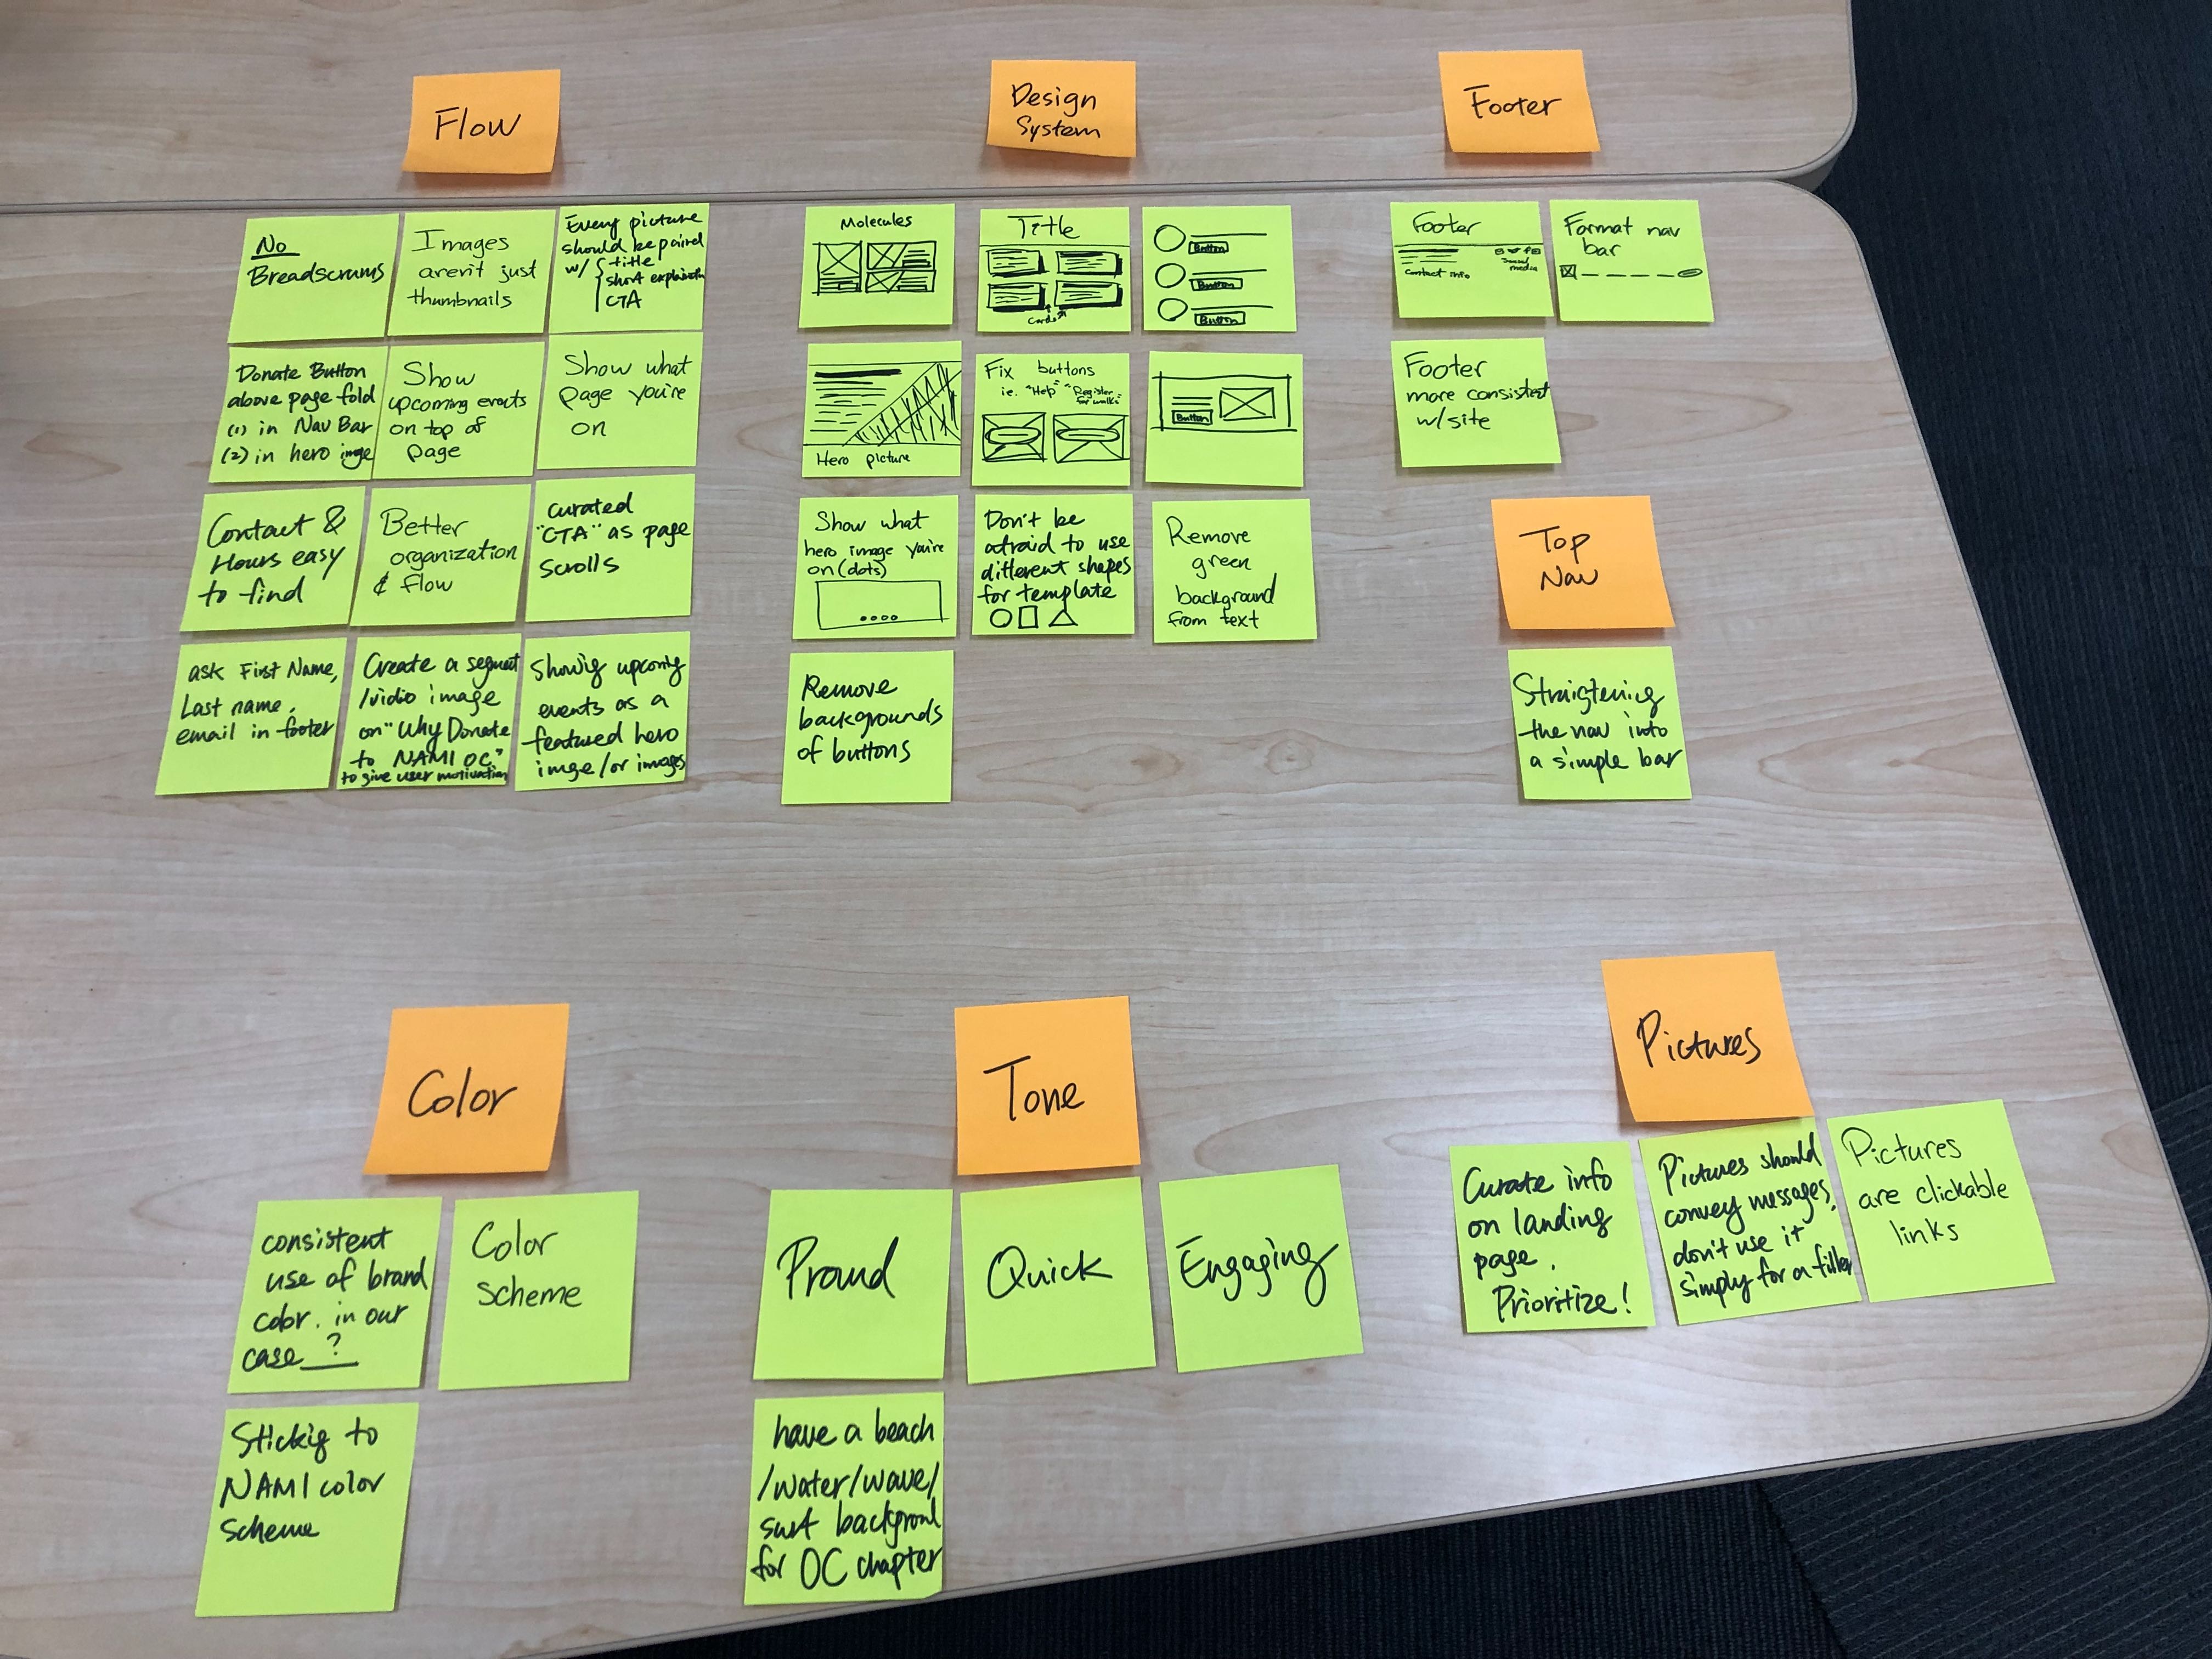 Flow
No
Breadscrums
Images
aren't just
thumbnails
Every picture
should be paired
w/ { title
short explination
CTA
Donate Button
above page fold
(1) in Nav Bar
(2) in hero imge
Show
upcoming events
on top of
page
Show what
page you're
on
Contact &
Hours easy
to find
Better
organization
& flow
curated
"CTA" as page
scrolls
ask First Name,
Last name,
email in footer
Create a segment
/vidio image
on "Why Donate
to NAMI OC"
to give user motivation
Showig upcomig
events as a
featured hero
imge/or images
Design
System
Molecules
Title
Cards
Button
Button
Button
Hero picture
Fix buttons
ie. "Help" "Register
for walks"
Button
Show what
hero image you're
on (dots)
Don't be
afraid to use
different shapes
for template
Remove
green
background
from text
Remove
backgrounds
of buttons
Footer
Footer
Contact info
Social
media
Format nav
bar
Footer
more consistent
w/site
Top
Nav
Straigtening
the nav into
a simple bar
Color
consistent
use of brand
color. in our
case ?
Color
Scheme
Stickig to
NAMI color
scheme
Tone
Proud
Quick
Engaging
have a beach
/water/wave/
surf backgroud
for OC chapter
Pictures
Curate info
on landing
page.
Prioritize!
Pictures should
convey messages,
don't use it
simply for a filler
Pictures
are clickable
links